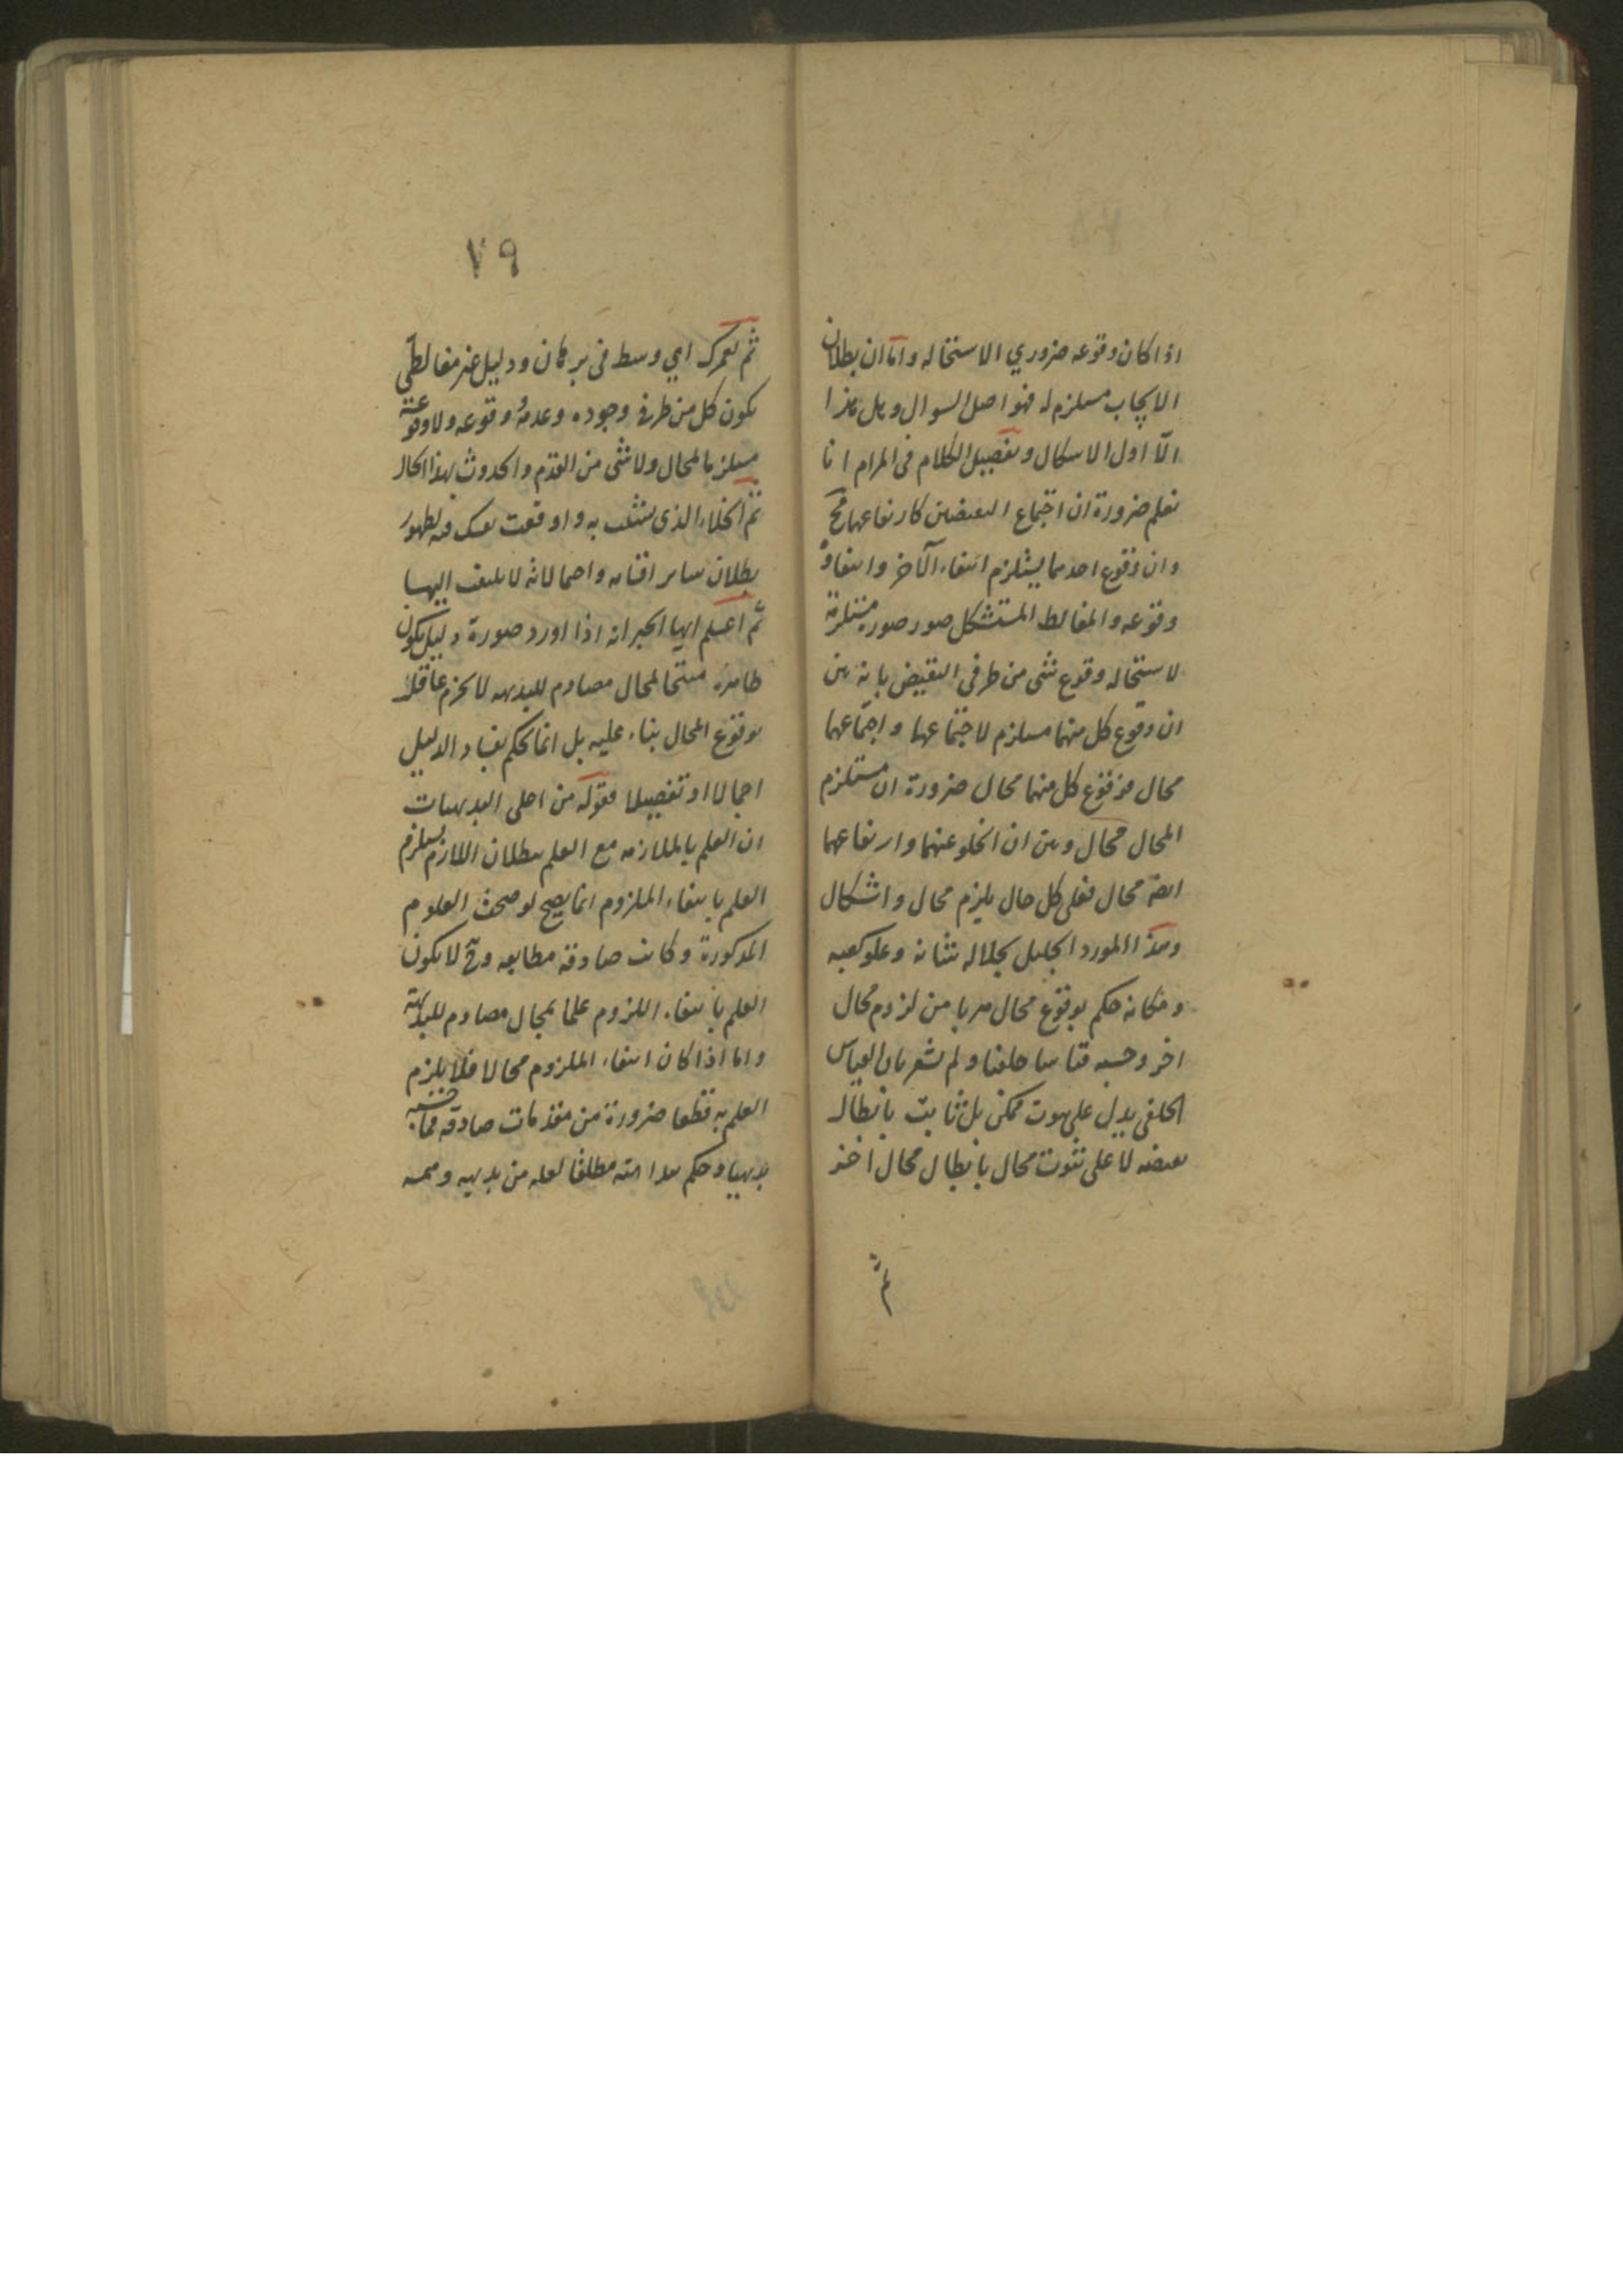 اذا كان وقوعه ضروري الاستحاله واما ان بطلان
الايجاب مستلزم له فهو اصل السوال وهل هذا
الا اول الاشكال وتفصيل الكلام في المرام انا
نعلم ضرورة ان اجتماع النقيضين كارتفاعهما مح
وان وقوع احدهما يستلزم انتفاء الآخر وانتفاؤه
وقوعه والمغالط المستشكل صور صورة مستلزمة
لاستحاله وقوع شئ من طرفي النقيض بانه بين
ان وقوع كل منهما مستلزم لاجتماعهما واجتماعهما
محال فوقوع كل منهما محال ضرورة ان مستلزم
المحال محال وبين ان الخلو عنهما وارتفاعهما
ايضا محال فعلى كل حال يلزم محال واشكال
وهذا المورد الجليل بجلاله شانه وعلو كعبه
ومكانه حكم بوقوع محال هربا من لزوم محال
اخر وحسبه قياسا خلفيا ولم يشعر بان القياس
الخلفي يدل على ثبوت ممكن بل ثابت بابطال
نقيضه لا على ثبوت محال بابطال محال اخر
ثم
٧٩
ثم لعمرك اي وسط في برهان ودليل غير مغالطي
يكون كل من طرفي وجوده وعدمه وقوعه ولا وقوعه
مستلزما لمحال ولا شئ من القدم والحدوث بهذا الحال
ثم الخلاء الذي تشبث به واوقعت نفسك فيه لظهور
بطلان سائر اقسامه واحتمالاته لا يلتفت اليها
ثم اعلم ايها الحبر انه اذا اورد صورة دليل يكون
ظاهره منتجا لمحال مصادم للبديهه لا يجزم عاقل
بوقوع المحال بناء عليه بل انما يحكم بفساد الدليل
اجمالا او تفصيلا فقوله من اجلى البديهيات
ان العلم بالملازمه مع العلم ببطلان اللازم يستلزم
العلم بانتفاء الملزوم انما يصح لو صحت العلوم
المذكورة وكانت صادقة مطابقه وح لا يكون
العلم بانتفاء اللزوم علما بمحال مصادم للبديهة
واما اذا كان انتفاء الملزوم محالا فلا يلزم
العلم به قطعا ضرورة من مقدمات صادقه فما حسبه
بديهيا وحكم بداهته مطلقا لعله من بديهه وهمه